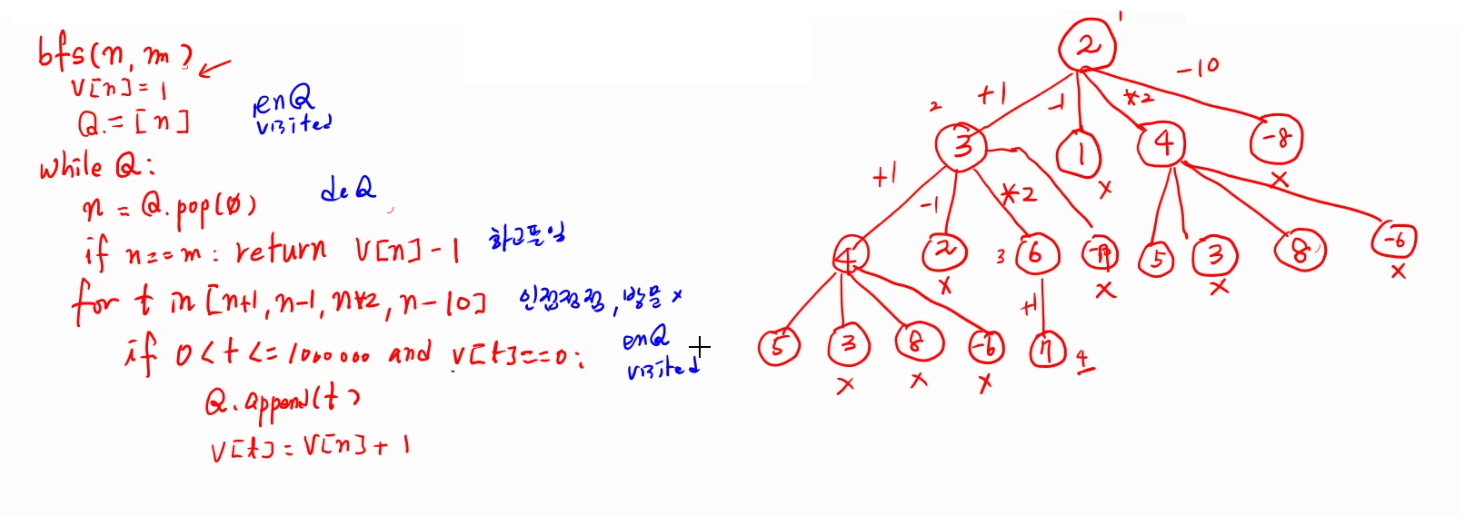 bfs(n, m)
V[n]=1
Q.=[n]
enQ
visited
while Q:
n = Q.pop(0)
deQ
if n==m: return V[n]-1
for t in [n+1, n-1, n*2, n-10]
인접정점, 방문 x
if 0<t<=1000000 and V[t]==0:
enQ
visited
Q.append(t)
V[t]=V[n]+1
1
2
+1
-1
*2
-10
2
3
1
4
-8
x
x
+1
-1
*2
4
2
3
6
5
3
8
-6
x
x
x
x
+1
5
3
8
-6
7
4
x
x
x